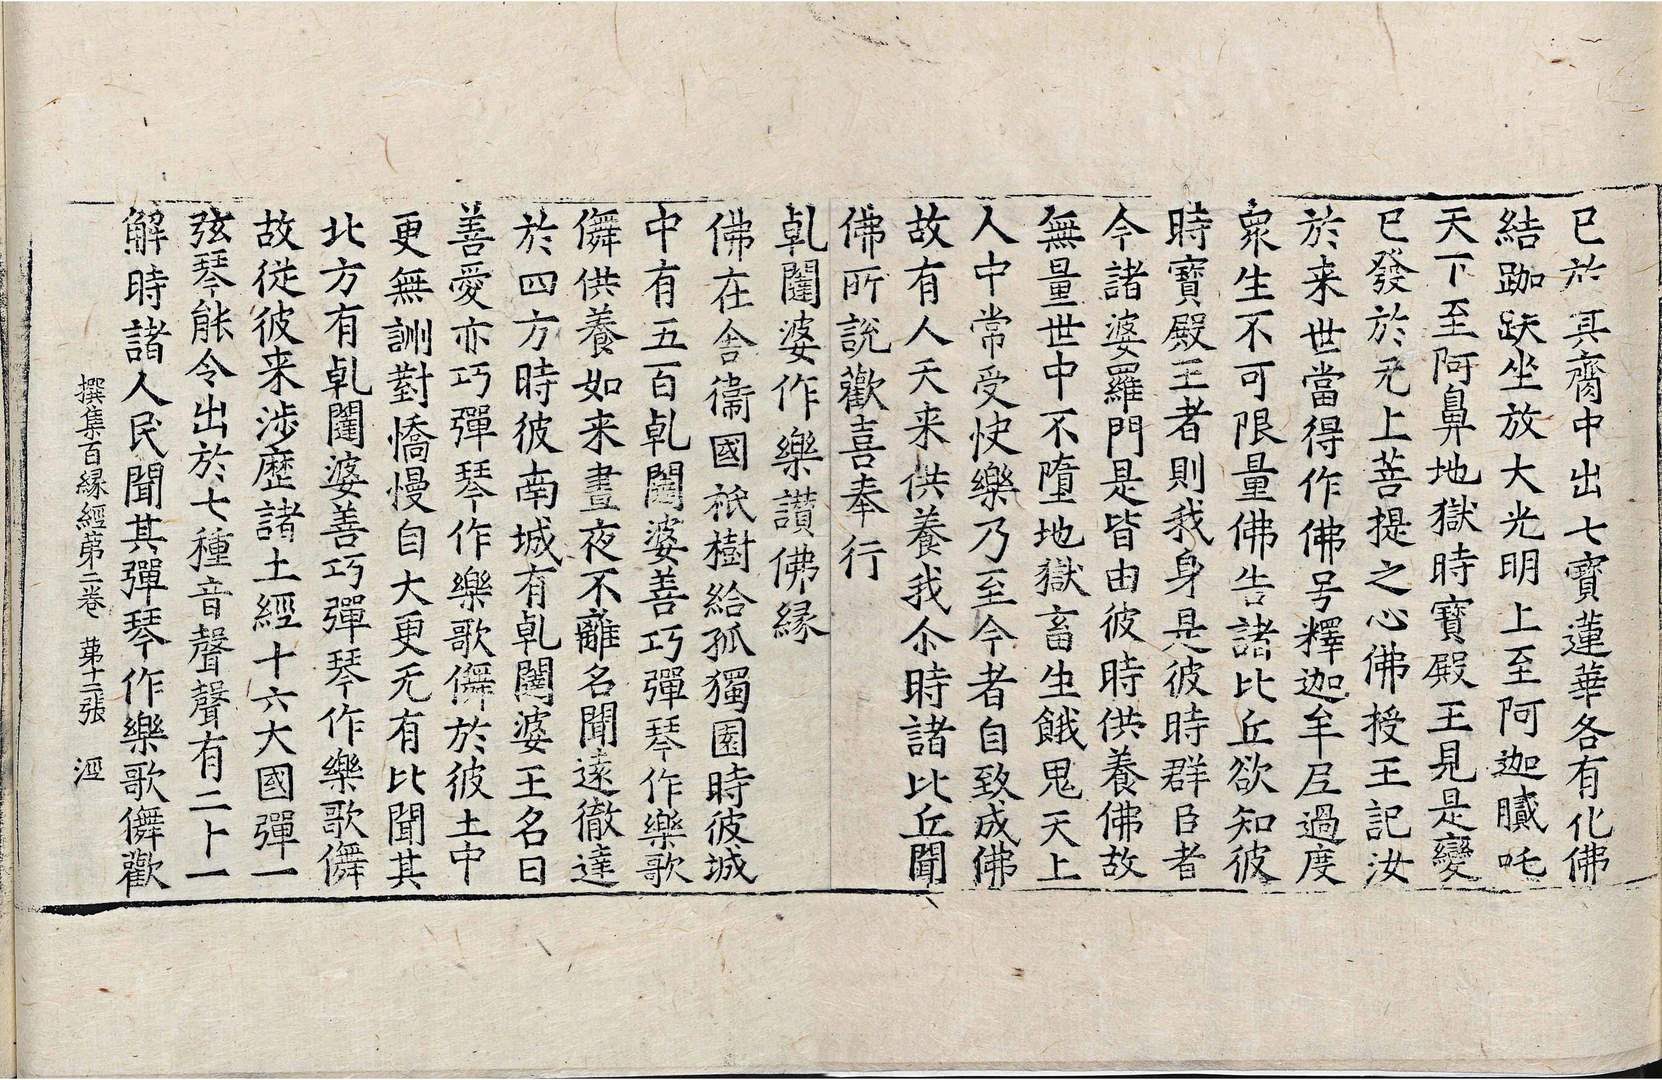 已於其齊中出七寶蓮華各有化佛
結跏趺坐放大光明上至阿迦膩吒
天下至阿鼻地獄時寶殿王見是變
已發於无上菩提之心佛授王記汝
於来世當得作佛号釋迦牟尼過度
衆生不可限量佛告諸比丘欲知彼
時寶殿王者則我身是彼時群臣者
今諸婆羅門是皆由彼時供養佛故
無量世中不墮地獄畜生餓鬼天上
人中常受快樂乃至今者自致成佛
故有人天来供養我尒時諸比丘聞
佛所說歡喜奉行
乹闥婆作樂讚佛縁
佛在舍衛國祇樹給孤獨園時彼城
中有五百乹闥婆善巧彈琴作樂歌
儛供養如来晝夜不離名聞遠徹達
於四方時彼南城有乹闥婆王名曰
善愛亦巧彈琴作樂歌儛於彼土中
更無詶對憍慢自大更无有比聞其
北方有乹闥婆善巧彈琴作樂歌儛
故從彼来渉歷諸土經十六大國彈一
弦琴能令出於七種音聲聲有二十一
解時諸人民聞其彈琴作樂歌儛歡
撰集百縁經苐二卷 苐十二張 溼